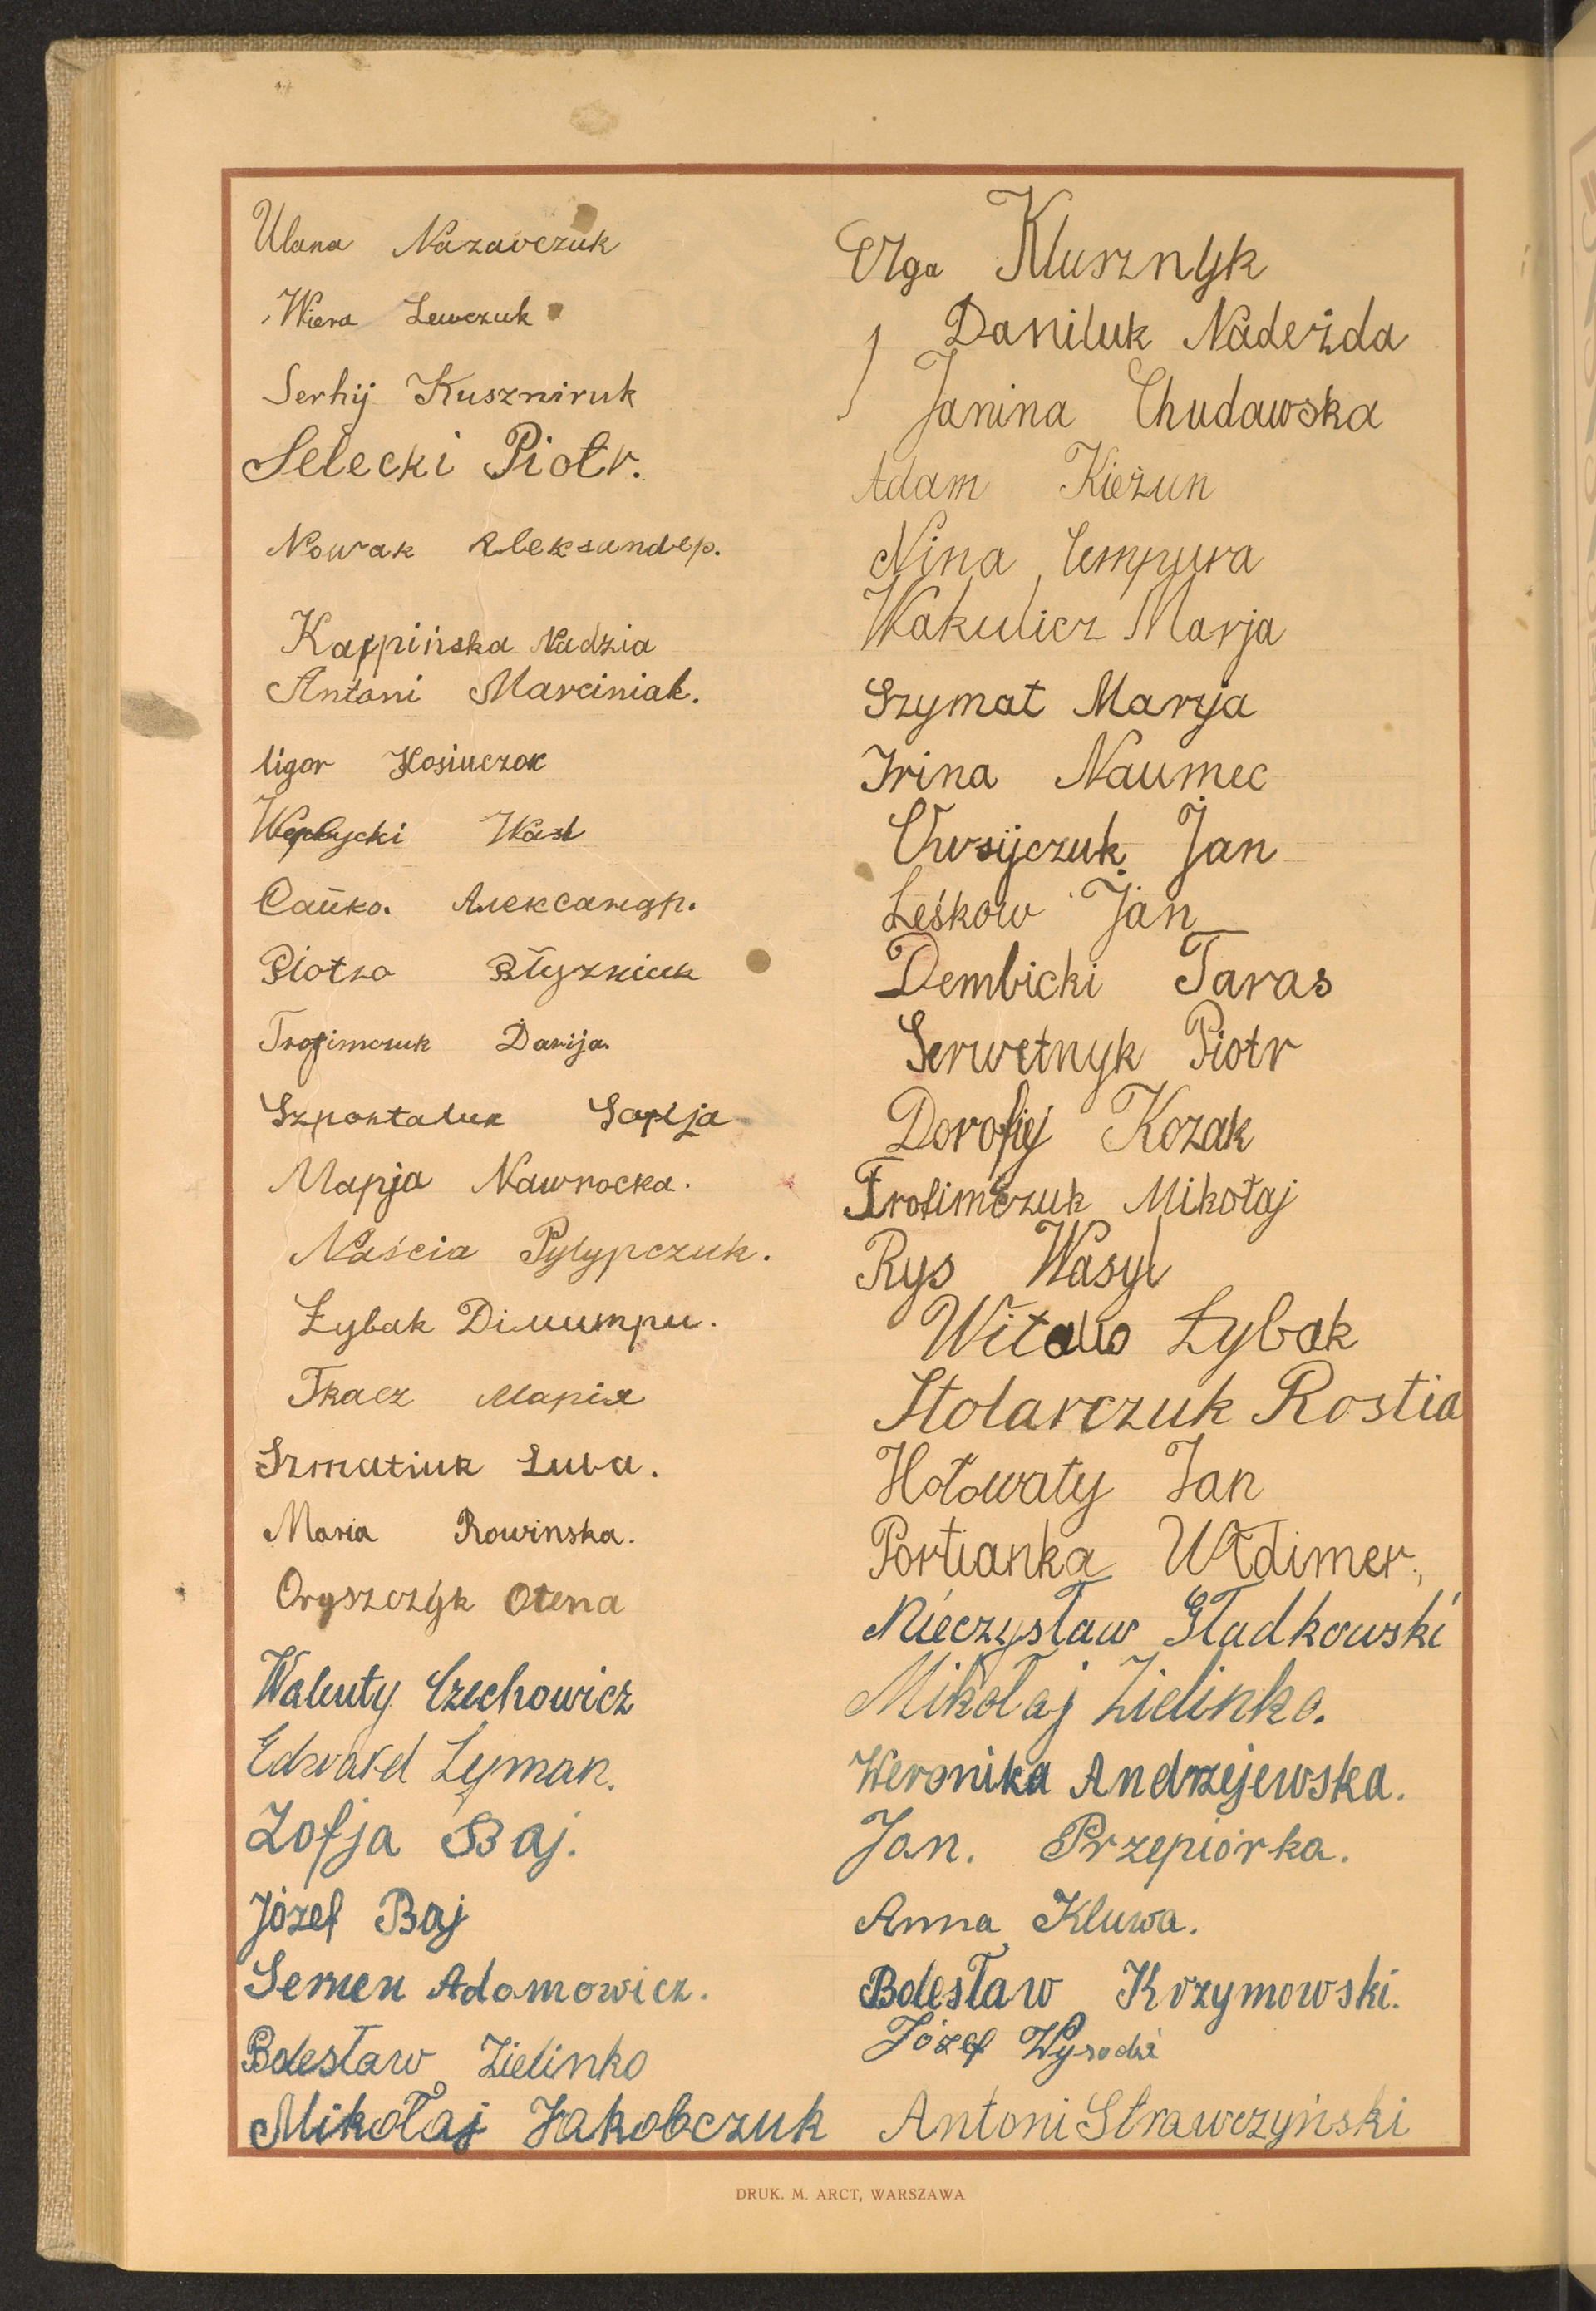 Ulana Nazarczuk
Wiera Lewczuk
Serhij Kuszniruk
Selecki Piotr.
Nowak Aleksandep.
Karpińska Nadzia
Antoni Marciniak.
Uigor Kosiuczok
Wasl
Сайко. Александр.
Piotro
Trofimczuk Darija.
Szpontaluk Sofija
Mapja Nawrocka.
Naścia Pylypczuk.
Łybak Димитри.
Tkacz Марія
Szmatiuk Luba.
Maria Rowinska.
Oryszczyk Ołena
Walenty Czechowicz
Edward Lyman.
Zofja Baj.
Józef Baj
Semen Adamowicz.
Bolesław Zielinko
Mikołaj Jakobczuk
Olga Klusznyk
Daniluk Nadeżda
Janina Chudawska
Adam Kieżun
Nina Cempura
Wakulicz Marja
Szymat Marya
Irina Naumec
Jan
Leśkow Jan
Dembicki Taras
Serwetnyk Piotr
Dorofij Kozak
Trofimczuk Mikołaj
Rys Wasyl
Łybak
Stolarczuk Rostia
Hołowaty Jan
Portianka Włdimer.
Mieczysław Gładkowski
Mikołaj Zielinko.
Weronika Andrzejewska.
Jan. Przepiórka.
Anna Kluwa.
Bolesław Krzymowski.
Józef
Antoni Strawczyński
DRUK. M. ARCT, WARSZAWA